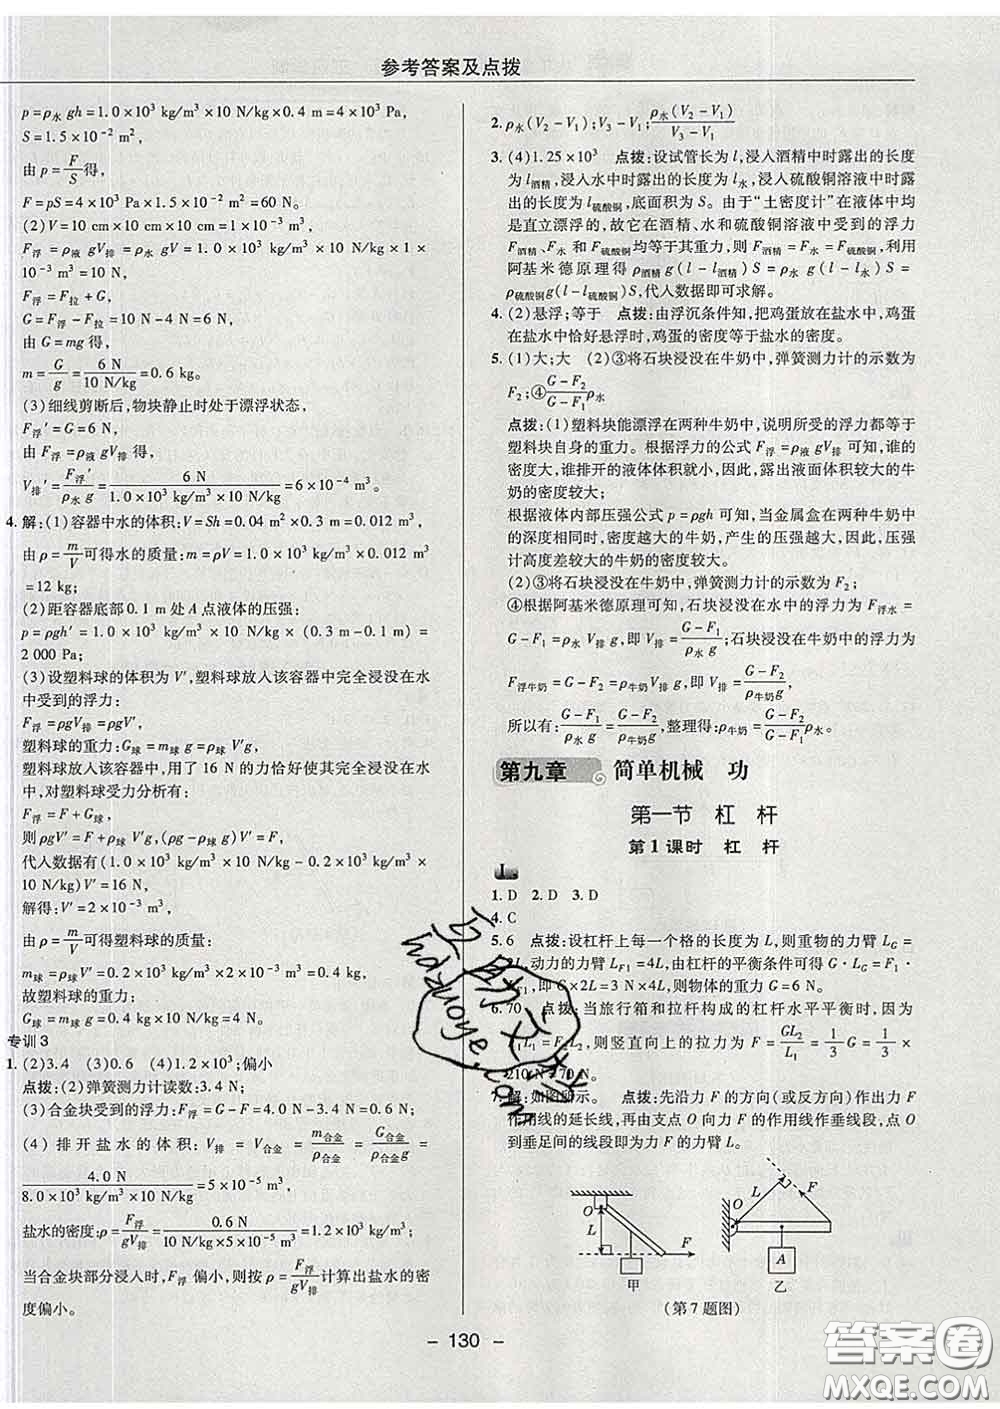 参考答案及点拨
p=ρ水 gh=1.0×10³ kg/m³×10 N/kg×0.4 m=4×10³ Pa,
S=1.5×10⁻² m²,
由 p=F/S得,
F=pS=4×10³ Pa×1.5×10⁻² m²=60 N。
(2)V=10 cm×10 cm×10 cm=1×10⁻³ m³,
F浮=ρ液 gV排=ρ水 gV=1.0×10³ kg/m³×10 N/kg×1×
10⁻³ m³=10 N,
F浮=F拉+G,
G=F浮-F拉=10 N-4 N=6 N,
由 G=mg 得,
m=G/g=6 N/10 N/kg=0.6 kg。
(3)细线剪断后,物块静止时处于漂浮状态,
F浮′=G=6 N,
由 F浮=ρ液 gV排 得,
V排′=F浮′/ρ水 g=6 N/1.0×10³ kg/m³×10 N/kg=6×10⁻⁴ m³。
4. 解:(1)容器中水的体积:V=Sh=0.04 m²×0.3 m=0.012 m³,
由 ρ=m/V可得水的质量:m=ρV=1.0×10³ kg/m³×0.012 m³
=12 kg;
(2)距容器底部0.1 m处A点液体的压强:
p=ρgh′=1.0×10³ kg/m³×10 N/kg×(0.3 m-0.1 m)=
2 000 Pa;
(3)设塑料球的体积为V′,塑料球放入该容器中完全浸没在水
中受到的浮力:
F浮=ρgV排=ρgV′,
塑料球的重力:G球=m球 g=ρ球 V′g,
塑料球放入该容器中,用了 16 N 的力恰好使其完全浸没在水
中,对塑料球受力分析有:
F浮=F+G球,
则 ρgV′=F+ρ球 V′g,(ρg-ρ球 g)V′=F,
代入数据有(1.0×10³ kg/m³×10 N/kg-0.2×10³ kg/m³×10
N/kg)V′=16 N,
解得:V′=2×10⁻³ m³,
由 ρ=m/V可得塑料球的质量:
m球=ρ球 V′=0.2×10³ kg/m³×2×10⁻³ m³=0.4 kg,
故塑料球的重力:
G球=m球 g=0.4 kg×10 N/kg=4 N。
专训3
1. (2)3.4 (3)0.6 (4)1.2×10³;偏小
点拨:(2)弹簧测力计读数:3.4 N;
(3)合金块受到的浮力:F浮=G-F=4.0 N-3.4 N=0.6 N;
(4) 排开盐水的体积:V排=V合金=m合金/ρ合金=G合金/ρ合金g=
4.0 N/8.0×10³ kg/m³×10 N/kg=5×10⁻⁵ m³,
盐水的密度:ρ=F浮/gV排=0.6 N/10 N/kg×5×10⁻⁵ m³=1.2×10³ kg/m³;
当合金块部分浸入时,F浮 偏小,则按 ρ=F浮/gV排计算出盐水的密
度偏小。
2. ρ水(V₂-V₁);V₃-V₁;ρ水(V₂-V₁)/V₃-V₁
3. (4)1.25×10³ 点拨:设试管长为 l,浸入酒精中时露出的长度
为 l酒精,浸入水中时露出的长度为 l水,浸入硫酸铜溶液中时露
出的长度为 l硫酸铜,底面积为 S。由于“土密度计”在液体中均
是直立漂浮的,故它在酒精、水和硫酸铜溶液中受到的浮力
F酒精、F水 和 F硫酸铜均等于其重力,则 F酒精=F水=F硫酸铜,利用
阿基米德原理得 ρ酒精 g(l-l酒精)S=ρ水 g(l-l水)S=
ρ硫酸铜g(l-l硫酸铜)S,代入数据即可求解。
4. (2)悬浮;等于 点拨:由浮沉条件知,把鸡蛋放在盐水中,鸡蛋
在盐水中恰好悬浮时,鸡蛋的密度等于盐水的密度。
5. (1)大;大 (2)③将石块浸没在牛奶中,弹簧测力计的示数为
F₂;④G-F₂/G-F₁ρ水
点拨:(1)塑料块能漂浮在两种牛奶中,说明所受的浮力都等于
塑料块自身的重力。根据浮力的公式 F浮=ρ液 gV排 可知,谁的
密度大,谁排开的液体体积就小,因此,露出液面体积较大的牛
奶的密度较大;
根据液体内部压强公式 p=ρgh 可知,当金属盒在两种牛奶中
的深度相同时,密度越大的牛奶,产生的压强越大,因此,压强
计高度差较大的牛奶的密度较大。
(2)③将石块浸没在牛奶中,弹簧测力计的示数为 F₂;
④根据阿基米德原理可知,石块浸没在水中的浮力为 F浮水=
G-F₁=ρ水 V排 g,即 V排=G-F₁/ρ水 g;石块浸没在牛奶中的浮力为
F浮牛奶=G-F₂=ρ牛奶V排 g,即 V排=G-F₂/ρ牛奶g,
所以有:G-F₁/ρ水 g=G-F₂/ρ牛奶g,整理得:ρ牛奶=G-F₂/G-F₁ρ水。
第九章 简单机械 功
第一节 杠 杆
第1课时 杠 杆
1. D 2. D 3. D
4. C
5. 6 点拨:设杠杆上每一个格的长度为 L,则重物的力臂 L_G=
2L,动力的力臂 L_F1=4L,由杠杆的平衡条件可得 G·L_G=F₁·
L_F1,即 G×2L=3 N×4L,则物体的重力 G=6 N。
6. 70 点拨:当旅行箱和拉杆构成的杠杆水平平衡时,因为
F₁L₁=F₂L₂,则竖直向上的拉力为 F=GL₂/L₁=1/3G=1/3×
210 N=70 N。
7. 解:如图所示。 点拨:先沿力 F 的方向(或反方向)作出力 F
作用线的延长线,再由支点 O 向力 F 的作用线作垂线段,点 O
到垂足间的线段即为力 F 的力臂 L。
O L F 甲
O L F A 乙
(第7题图)
- 130 -
答案卷
MXQE.COM